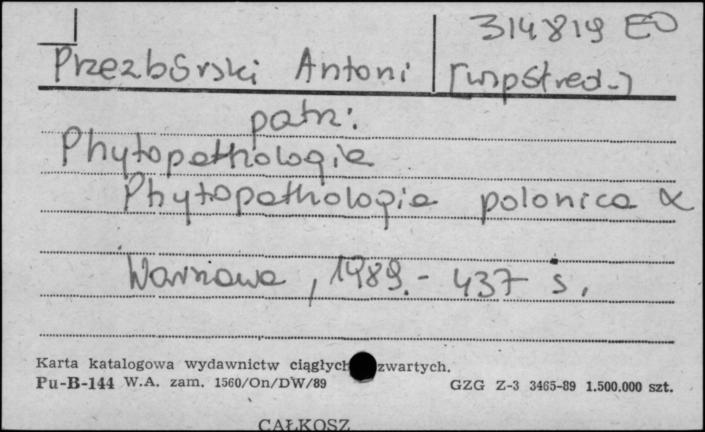 314819 EO
Przezbórski Antoni [współred.]
patrz:
Phytopathologia
Phytopathologia polonica α
Warszawa, 1989.- 437 s.
Karta katalogowa wydawnictw ciągłych zwartych.
Pu-B-144 W.A. zam. 1560/On/DW/89 GZG Z-3 3465-89 1.500.000 szt.
CAŁKOSZ